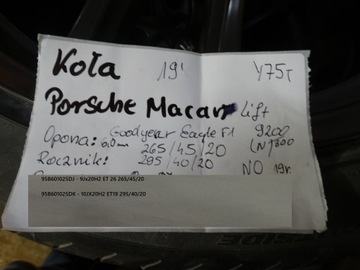 Koła 19' Y75T
Porsche Macan Lift
Opona: Goodyear Eagle F1 9200
6,0mm 265/45/20 (N)300
Rocznik: 295/40/20 NO 19r.
95B601025DJ - 9Jx20H2 ET 26 265/45/20
95B601025DK - 10JX20H2 ET19 295/40/20